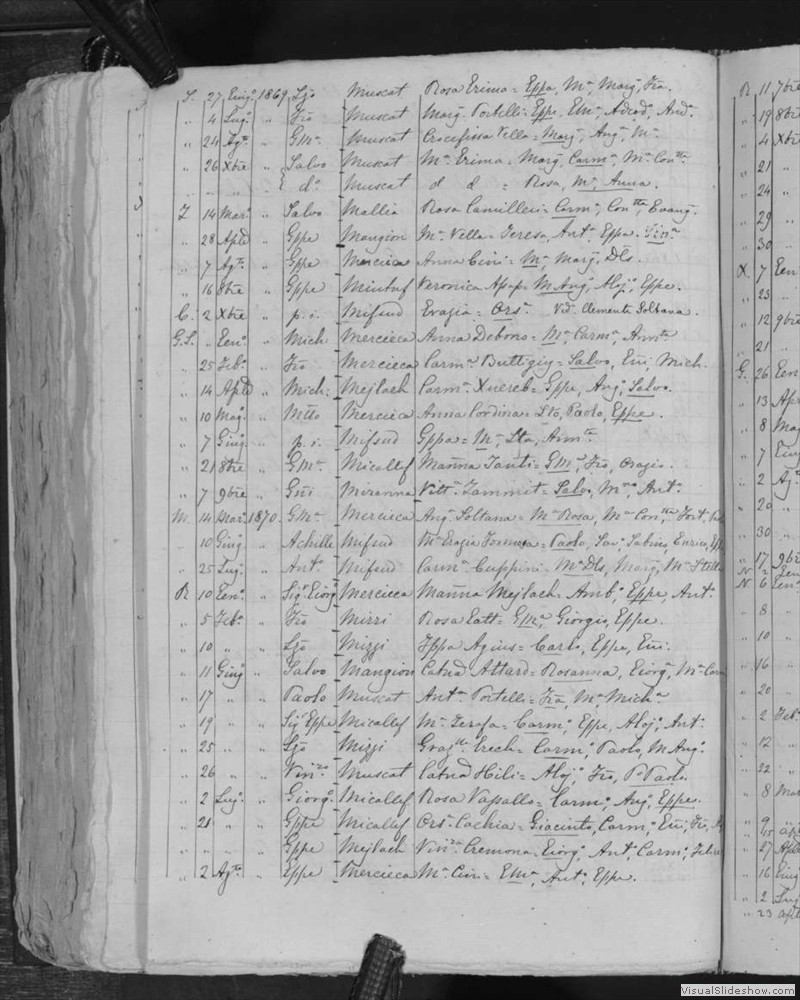 S. 27 Giug.o 1869 Muscat Rosa Erima = Eppa, M.a Marg. Fra.
" 4 Lug.o " Fro Muscat Marg. Portelli = Eppe, Em. And.a
" 24 Ag.to " G.M.a Muscat Crocifissa Vella = Marg. Ang. M.a
" 26 Xbre " Salvo Muscat M.a Erima = Marg. Carm.a M.a Con.tta
" " " d.o Muscat d d = Rosa, M.a Anna.
Z 14 Mar.o " Salvo Mallia Rosa Camilleri = Carm. Con.tta Evang.
" 28 Aple " Gppe Mangion M.a Vella = Teresa, Ant.a Eppa. Vin.a
" 7 Ag.to " Gppe Mercieca Anna Cini = M.a Marg. Dls.
" 16 8bre " Gppe Mintuf Veronica Apap = M. Ang. Aloj. Eppe.
C. 2 Xbre " p. i. Mifsud Eragia = Ors.a Vid. Clemente Soltana.
G.S. " Gen.o " Mich. Mercieca Anna Debono = M.a Carm.a Ann.ta
" 25 Feb.o " Fro Mercieca Carm.a Buttigig = Salvo, Em. Mich.
" 14 Aple " Mich. Mejlach Carm.a Xuereb = Eppe, Ang. Salvo.
" 10 Mag.o " Mercieca Anna Cordina = Paolo, Eppe.
" 7 Giug.o " p. i. Mifsud Gppa = M.a Ann.ta
" 21 8bre " G.M.a Micallef Manna Tanti = G.M.a Fro, Oragio.
" 7 9bre " Gni Miranna Vitt.a Zammit = Salvo, M.a Ant.a
M. 14 Mar.o 1870 G.M.a Mercieca Ang. Soltana = M.a Rosa, M.a Con.tta Fort.
" 10 Giug.o Achille Mifsud M.a Eragia = Paolo, Sav. Sabino, Enrico,
" 25 Lug.o " Ant.o Mifsud Carm.a Cuppini = M.a Dls, Marg. M.a Stella
R 10 Gen.o " Sig.r Giorg. Mercieca Manna Mejlach = Amb. Eppe, Ant.
" 5 Feb.o " Fro Mizzi Rosa Catt = G.M.a Giorgio, Eppe.
" 10 " " Mizzi Gppa Agius = Carlo, Eppe, Em.
" 11 Giug.o " Salvo Mangion Catna Attard = Rosanna, Giorg. M.a Carm.
" 17 " " Paolo Muscat Ant.a Portelli = Fra, M.a Mich.a
" 19 " " Sig.r Eppe Micallef M.a = Carm.o Eppe, Aloj. Ant.
" 25 " " Mizzi Graz.tta = Carm.o Paolo, M. Ang.
" 26 " " Vin.zo Muscat Catna Hili = Aloj. Fro, P. Paolo.
" 2 Lug.o " Giorg. Micallef Rosa Vassallo = Carm.o Ang. Eppe.
" 21 " " Gppe Micallef Ors.a Cachia = Giacinto, Carm.o Em. Fro,
" " " Gppe Mejlach Vin.za Cremona = Giorg. Ant. Carm.o Felice
" 2 Ag.to " Eppe Mercieca M.a Cini = Em.a Ant. Eppe.
R 11 7bre
" 19 8bre
" 4 Xbre
" 21 "
" 24 "
" 29 "
" 30 "
X. 7 Gen
" 23 "
" 12 9bre
" 21 "
G. 26 Gen
" 13 Apr
" 8 Mag
" 7 Giug
" 2 Ag.
" 20 "
" 30 "
" 17 9bre
N 2 Gen
N 6 Gen
" 8 "
" 10 "
" 16 "
" 20 "
" 2 Feb.
" 12 "
" 22 "
" 8 Mar
" 9 "
" 15 ap
" 27 Aple
" 16 Giug
" 2 Lug
" 23 apl
VisualSlideshow.com